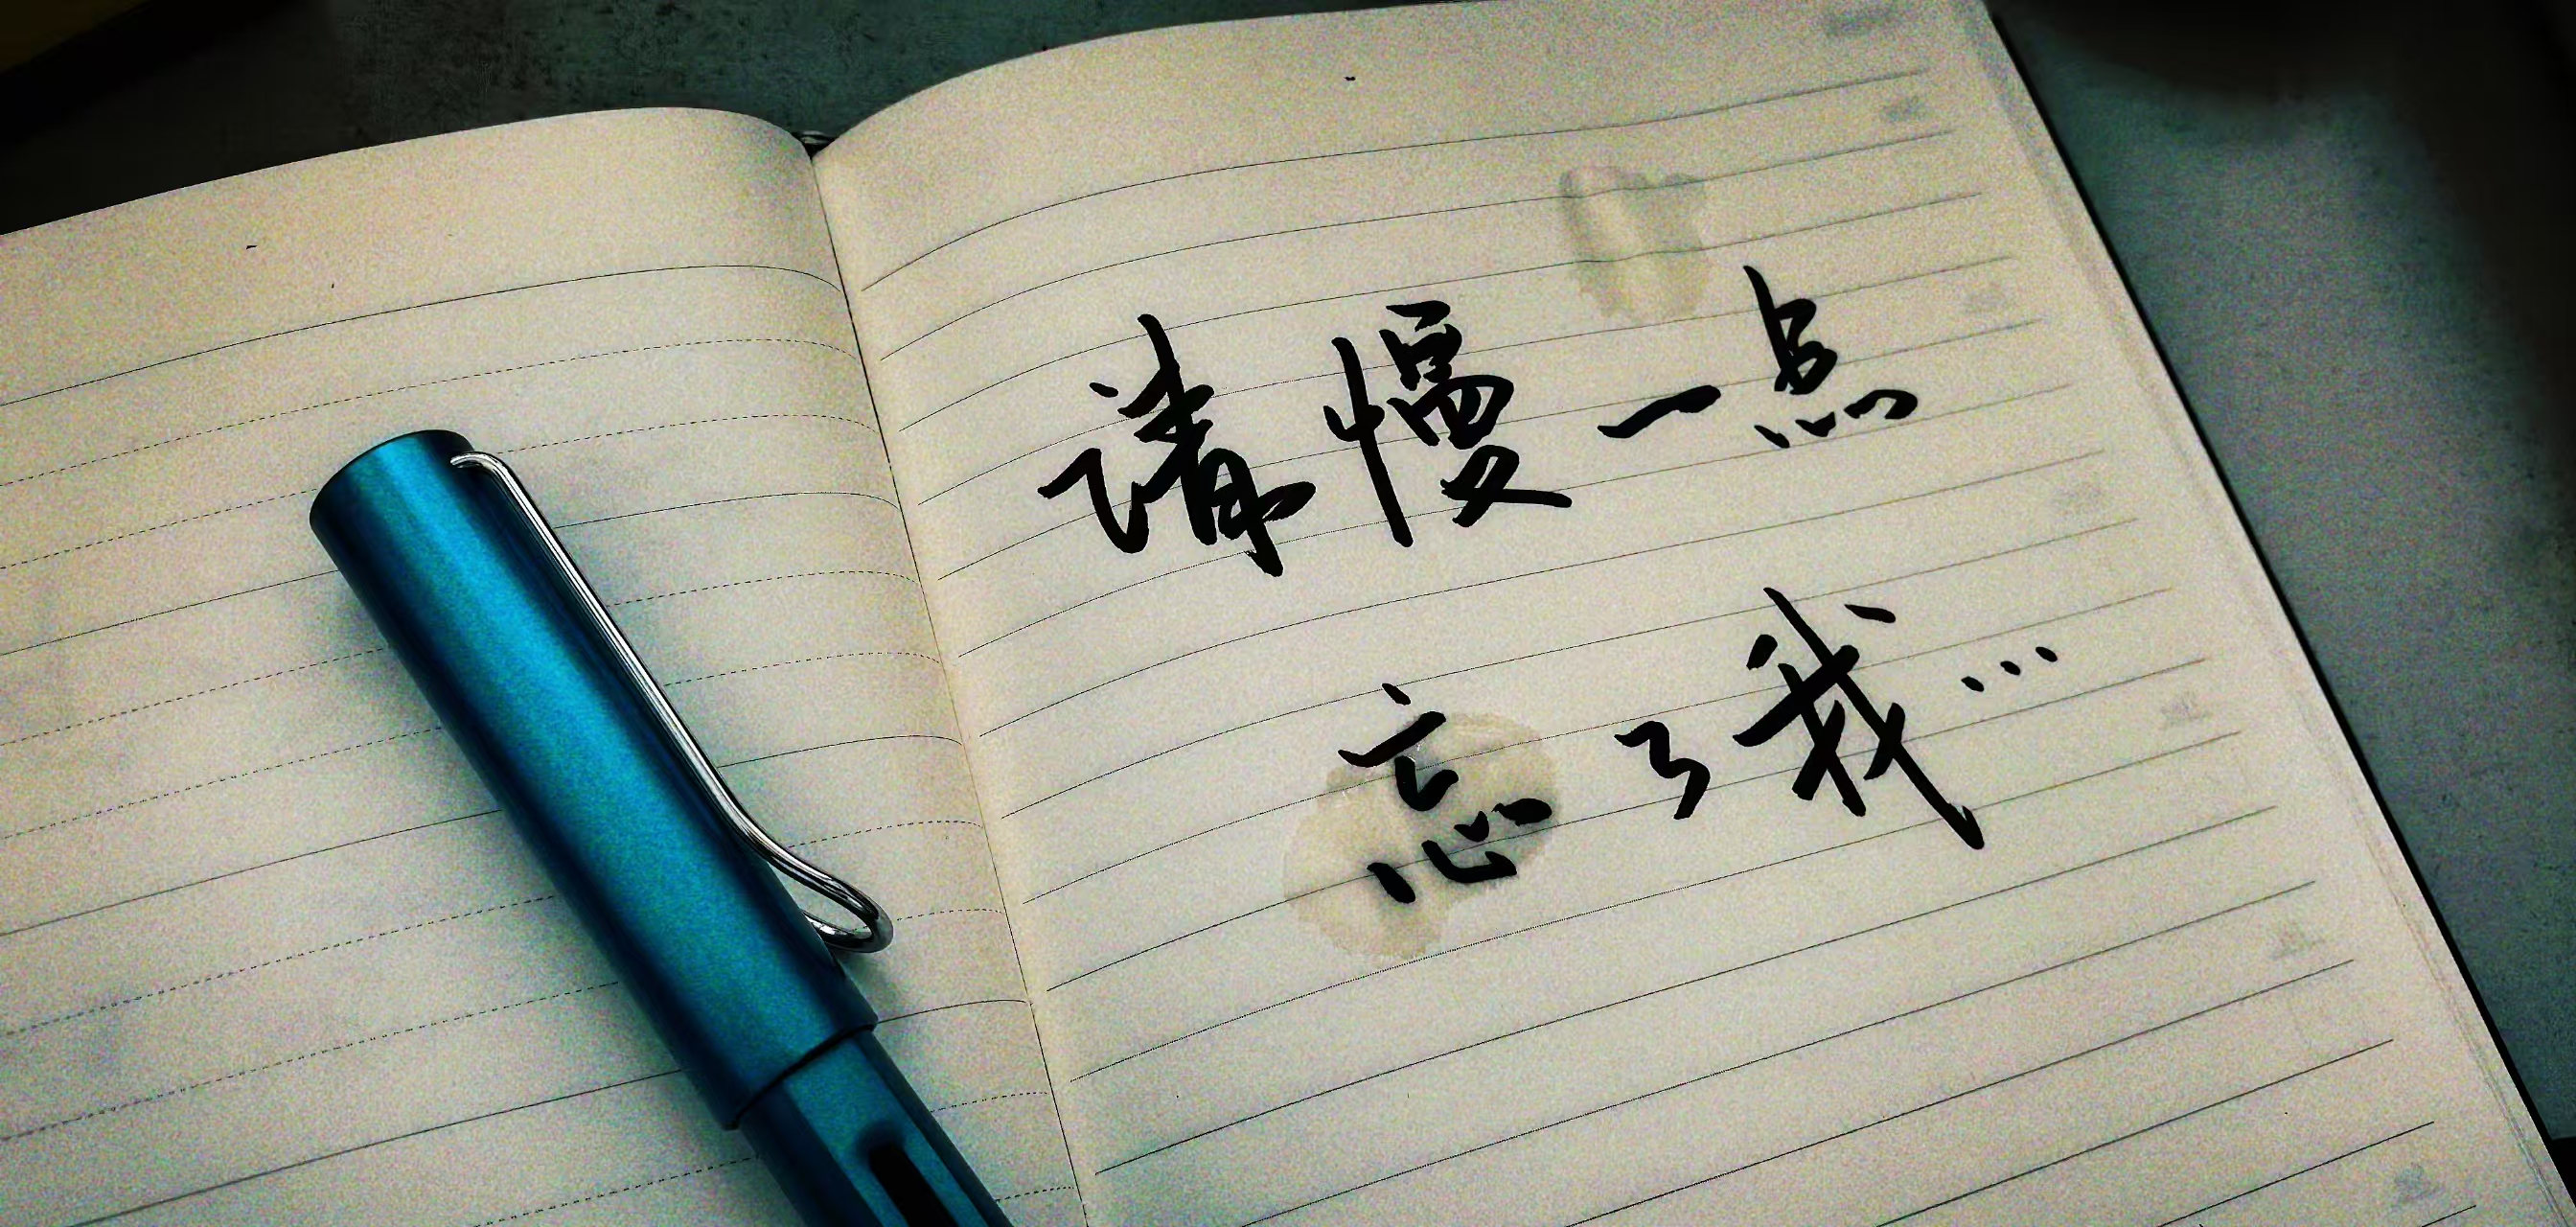 请慢一点
忘了我…